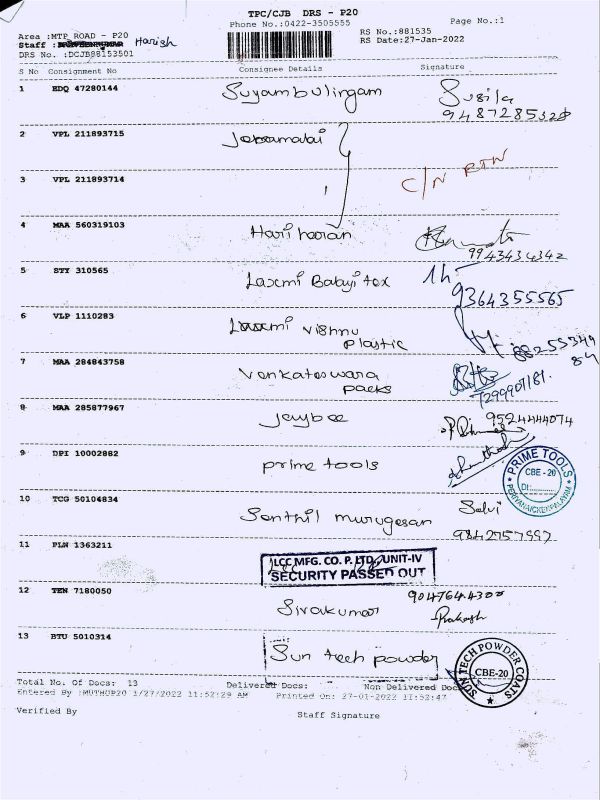 TPC/CJB DRS - P20
Phone No.:0422-3505555
Page No.:1
Area :MTP ROAD - P20
RS No.:881535
Staff : Harish
RS Date:27-Jan-2022
DRS No. :DCJB88153501
S No Consignment No Consignee Details Signature
1 EDQ 47280144 Suyambulingam Susila
9487285328
2 VPL 211893715
3 VPL 211893714 C/N RTN
4 MAA 560319103 Hariharan
9943434342
5 STY 310565 Laxmi Balaji tex
9364355565
6 VLP 1110283 Laxmi Vishnu
plastic
7 MAA 284843758 Venkateswara
packs
7299901181.
8 MAA 285877967 Jaybee 9524444074
9 DPI 10002882 prime tools
PRIME TOOLS
CBE - 20
DT:
PERIYANAICKENPALAYAM
10 TCG 50104834 Senthil murugesan Selvi
9842757997
11 PLN 1363211
LCC MFG. CO. P. LTD., UNIT-IV
SECURITY PASSED OUT
12 TEN 7180050 Sivakumar 9047644300
Prakash
13 BTU 5010314 Sun tech powder
SUN TECH POWDER COATS
CBE-20
Total No. Of Docs: 13 Delivered Docs: Non Delivered Doc
Entered By :MUTHUP20 1/27/2022 11:52:29 AM Printed On: 27-01-2022 11:52:47
Verified By
Staff Signature